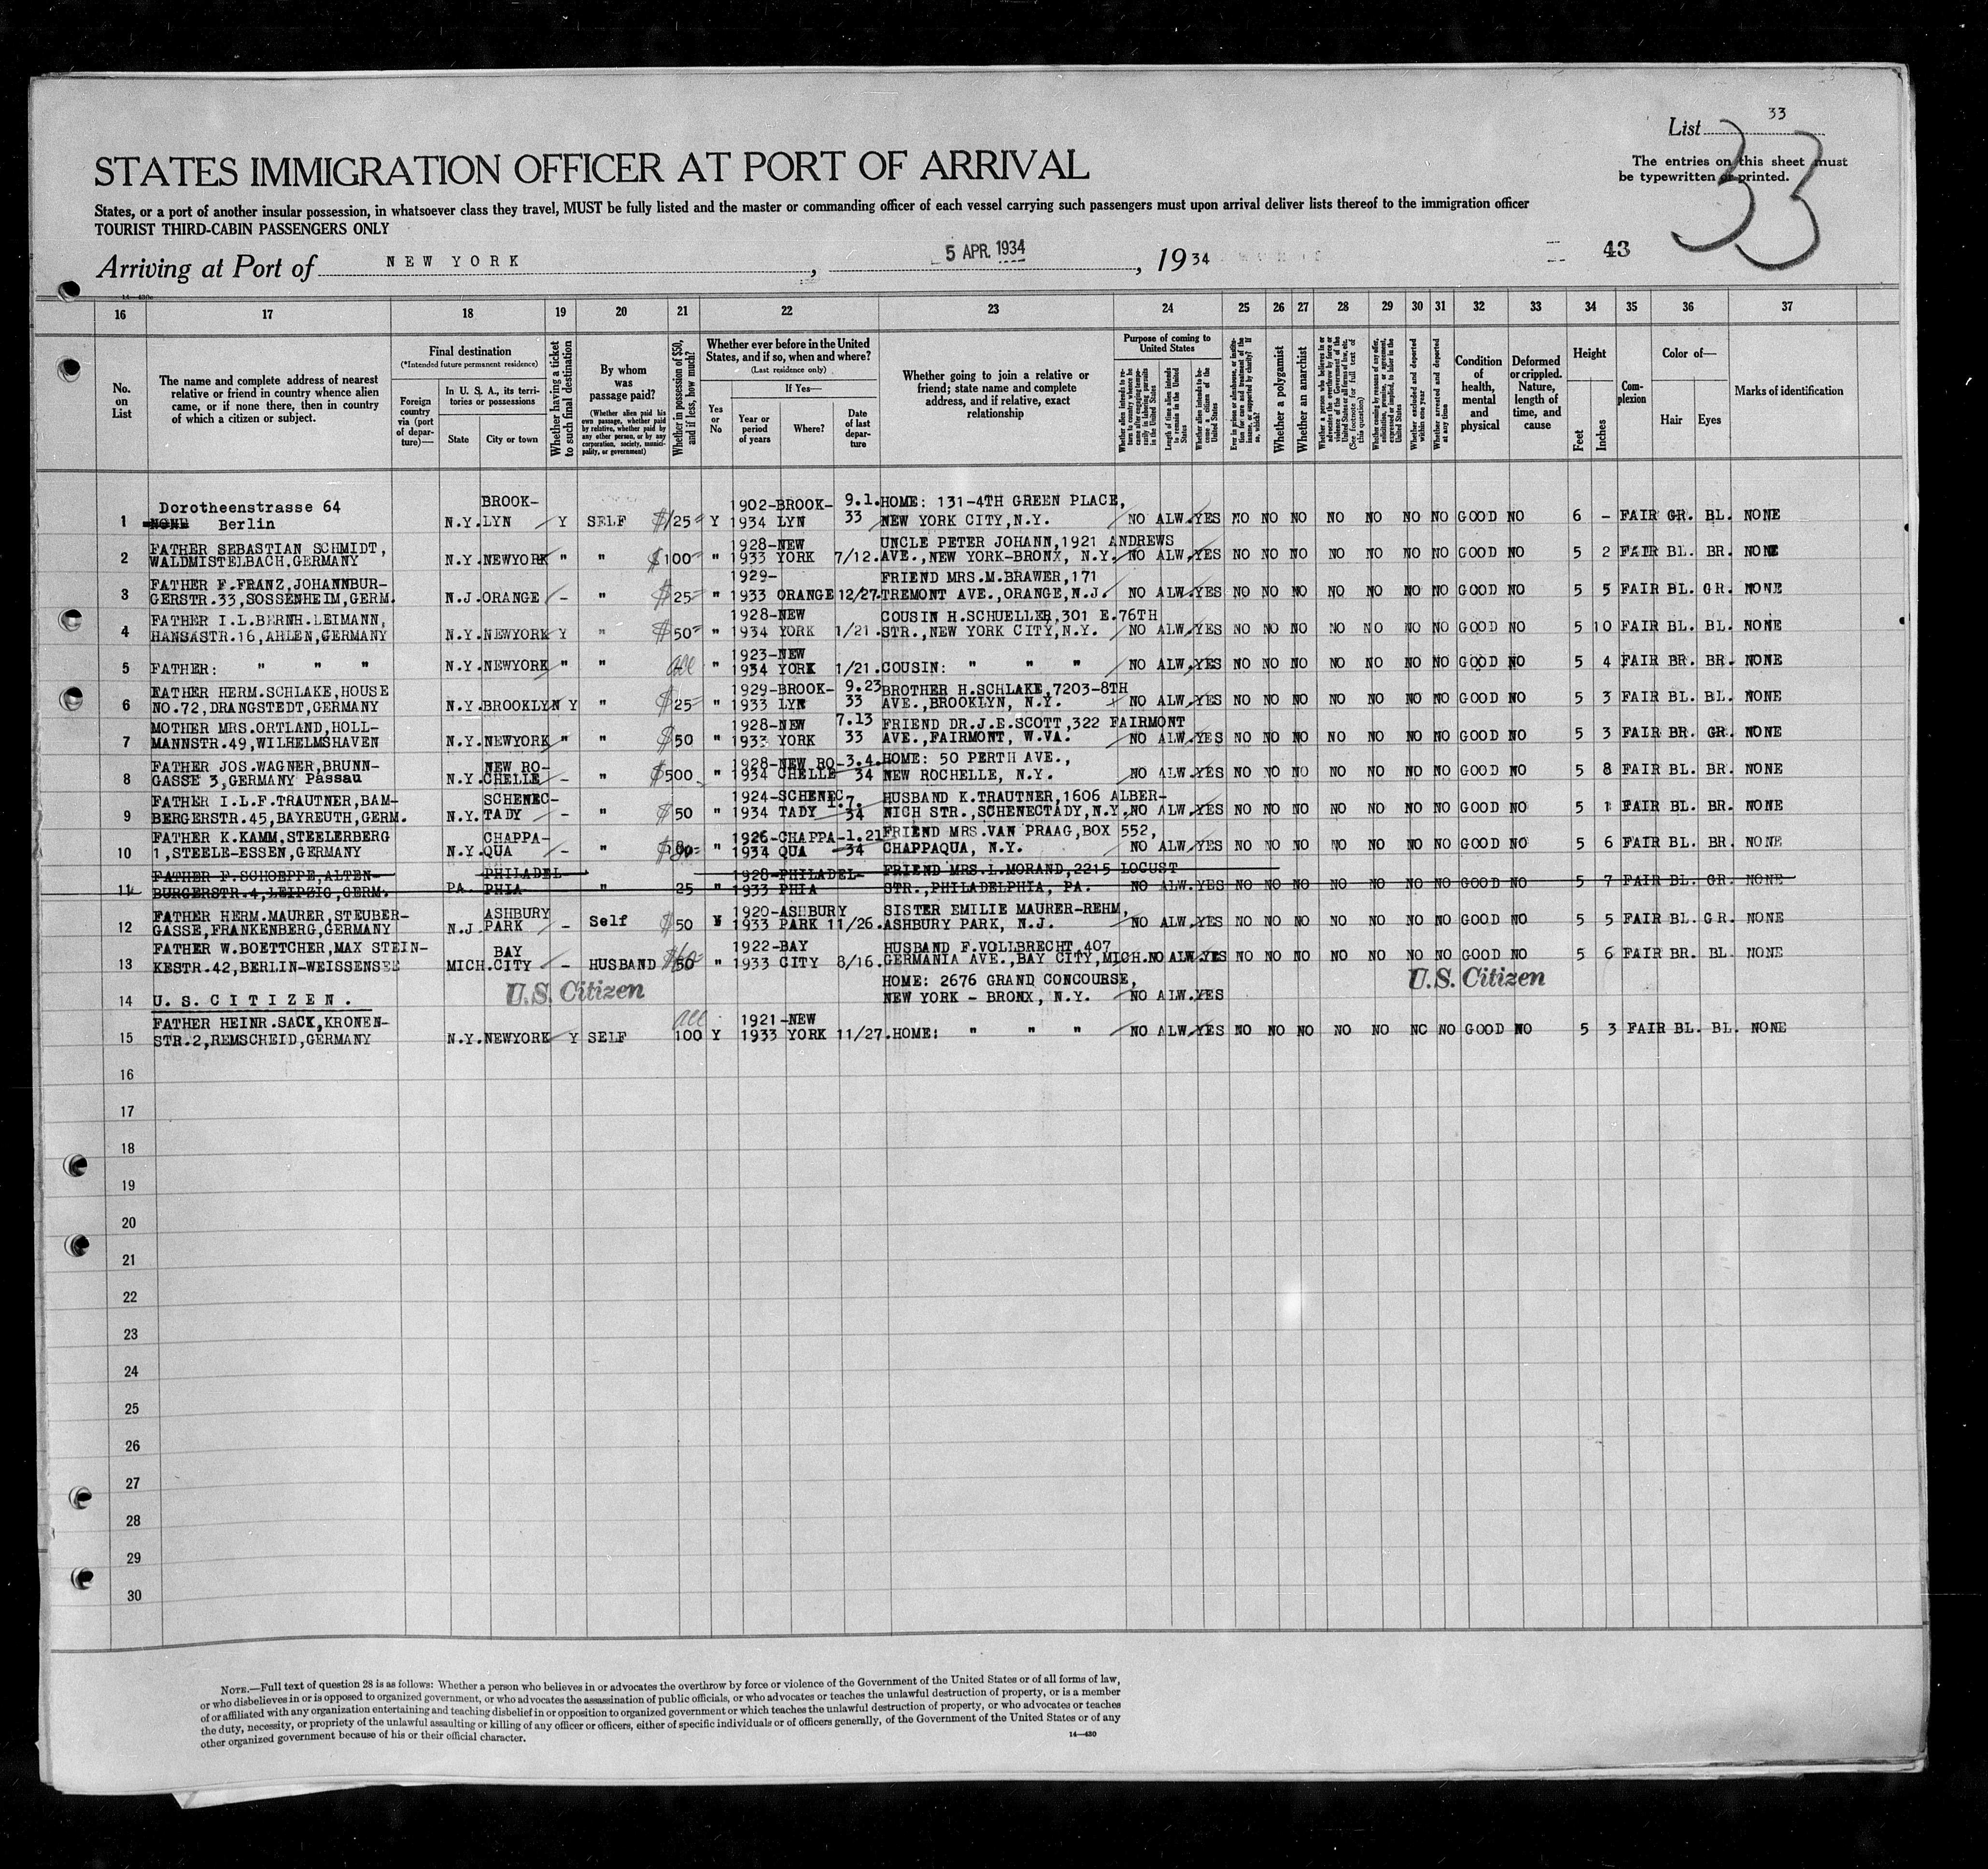 33
List
33
STATES IMMIGRATION OFFICER AT PORT OF ARRIVAL
The entries on this sheet must
be typewritten or printed.
States, or a port of another insular possession, in whatsoever class they travel, MUST be fully listed and the master or commanding officer of each vessel carrying such passengers must upon arrival deliver lists thereof to the immigration officer
TOURIST THIRD-CABIN PASSENGERS ONLY
Arriving at Port of NEW YORK , 5 APR. 1934 , 1934
43
16 17 18 19 20 21 22 23 24 25 26 27 28 29 30 31 32 33 34 35 36 37
No. on List
The name and complete address of nearest relative or friend in country whence alien came, or if none there, then in country of which a citizen or subject.
Final destination
(*Intended future permanent residence)
Foreign country via (port of departure)—
In U. S. A., its territories or possessions
State
City or town
Whether having a ticket to such final destination
By whom was passage paid?
(Whether alien paid his own passage, whether paid by relative, whether paid by any other person, or by any corporation, society, municipality, or government)
Whether in possession of $50, and if less, how much?
Whether ever before in the United States, and if so, when and where?
(Last residence only)
Yes or No
If Yes—
Year or period of years
Where?
Date of last departure
Whether going to join a relative or friend; state name and complete address, and if relative, exact relationship
Purpose of coming to United States
Length of time alien intends to remain in the United States
Whether alien intends to become a citizen of the United States
Whether a polygamist
Whether an anarchist
Whether excluded and deported within one year
Whether arrested and deported at any time
Condition of health, mental and physical
Deformed or crippled. Nature, length of time, and cause
Height
Feet
Inches
Complexion
Color of—
Hair
Eyes
Marks of identification
1 Dorotheenstrasse 64 NONE Berlin N.Y. BROOK-LYN Y SELF $125 Y 1902-1934 BROOK-LYN 9.1.33 HOME: 131-4TH GREEN PLACE, NEW YORK CITY,N.Y. NO ALW. YES NO NO NO NO NO NO NO GOOD NO 6 - FAIR GR. BL. NONE
2 FATHER SEBASTIAN SCHMIDT, WALDMISTELBACH,GERMANY N.Y. NEWYORK " " $100 " 1928-1933 NEW YORK 7/12. UNCLE PETER JOHANN,1921 ANDREWS AVE.,NEW YORK-BRONX, N.Y. NO ALW. YES NO NO NO NO NO NO NO GOOD NO 5 2 FAIR BL. BR. NONE
3 FATHER F.FRANZ,JOHANNBUR-GERSTR.33,SOSSENHEIM,GERM. N.J. ORANGE - " $25 " 1929-1933 ORANGE 12/27. FRIEND MRS.M.BRAWER,171 TREMONT AVE.,ORANGE,N.J. NO ALW. YES NO NO NO NO NO NO NO GOOD NO 5 5 FAIR BL. GR. NONE
4 FATHER I.L.BERNH.LEIMANN, HANSASTR.16,AHLEN,GERMANY N.Y. NEWYORK Y " $50 " 1928-1934 NEW YORK 1/21. COUSIN H.SCHUELLER,301 E.76TH STR.,NEW YORK CITY,N.Y. NO ALW. YES NO NO NO NO NO NO NO GOOD NO 5 10 FAIR BL. BL. NONE
5 FATHER: " " " N.Y. NEWYORK " " all " 1923-1934 NEW YORK 1/21. COUSIN: " " " NO ALW. YES NO NO NO NO NO NO NO GOOD NO 5 4 FAIR BR. BR. NONE
6 FATHER HERM.SCHLAKE,HOUSE NO.72,DRANGSTEDT,GERMANY N.Y. BROOKLYN Y " $25 " 1929-1933 BROOK-LYN 9.23 33 BROTHER H.SCHLAKE,7203-8TH AVE.,BROOKLYN, N.Y. NO ALW. YES NO NO NO NO NO NO NO GOOD NO 5 3 FAIR BL. BL. NONE
7 MOTHER MRS.ORTLAND,HOLL-MANNSTR.49,WILHELMSHAVEN N.Y. NEWYORK " " $50 " 1928-1933 NEW YORK 7.13 33 FRIEND DR.J.E.SCOTT,322 FAIRMONT AVE.,FAIRMONT, W.VA. NO ALW. YES NO NO NO NO NO NO NO GOOD NO 5 3 FAIR BR. GR. NONE
8 FATHER JOS.WAGNER,BRUNN-GASSE 3,GERMANY Passau N.Y. NEW RO-CHELLE - " $500 " 1928-1934 NEW RO-CHELLE 3.4. 34 HOME: 50 PERTH AVE., NEW ROCHELLE, N.Y. NO ALW. YES NO NO NO NO NO NO NO GOOD NO 5 8 FAIR BL. BR. NONE
9 FATHER I.L.F.TRAUTNER,BAM-BERGERSTR.45,BAYREUTH,GERM. N.Y. SCHENEC-TADY - " $50 " 1924-1934 SCHENEC TADY 1.7. 34 HUSBAND K.TRAUTNER,1606 ALBER-NICH STR.,SCHENECTADY,N.Y. NO ALW. YES NO NO NO NO NO NO NO GOOD NO 5 1 FAIR BL. BR. NONE
10 FATHER K.KAMM,STEELERBERG 1,STEELE-ESSEN,GERMANY N.Y. CHAPPA-QUA - " " 1926-1934 CHAPPA-QUA 1.21 34 FRIEND MRS.VAN PRAAG,BOX 552, CHAPPAQUA, N.Y. NO ALW. YES NO NO NO NO NO NO NO GOOD NO 5 6 FAIR BL. BR. NONE
11 FATHER F.SCHOEPPE,ALTEN-BURGERSTR.4,LEIPZIG,GERM. PA. PHILADEL-PHIA " 25 " 1928-1933 PHILADEL-PHIA FRIEND MRS.L.MORAND,2215 LOCUST STR.,PHILADELPHIA, PA. NO ALW. YES NO NO NO NO NO NO NO GOOD NO 5 7 FAIR BL. GR. NONE
12 FATHER HERM.MAURER,STEUBER-GASSE,FRANKENBERG,GERMANY N.J. ASHBURY PARK - Self $50 Y 1920-1933 ASHBURY PARK 11/26. SISTER EMILIE MAURER-REHM, ASHBURY PARK, N.J. NO ALW. YES NO NO NO NO NO NO NO GOOD NO 5 5 FAIR BL. GR. NONE
13 FATHER W.BOETTCHER,MAX STEIN-KESTR.42,BERLIN-WEISSENSEE MICH. BAY CITY - HUSBAND 50 " 1922-1933 BAY CITY 8/16. HUSBAND F.VOLLBRECHT,407 GERMANIA AVE.,BAY CITY,MICH. NO ALW. YES NO NO NO NO NO NO NO GOOD NO 5 6 FAIR BR. BL. NONE
14 U.S.CITIZEN. U.S. Citizen HOME: 2676 GRAND CONCOURSE, NEW YORK - BRONX, N.Y. NO ALW. YES U.S. Citizen
15 FATHER HEINR.SACK,KRONEN-STR.2,REMSCHEID,GERMANY N.Y. NEWYORK Y SELF all 100 Y 1921-1933 NEW YORK 11/27. HOME: " " " NO ALW. YES NO NO NO NO NO NC NO GOOD NO 5 3 FAIR BL. BL. NONE
16
17
18
19
20
21
22
23
24
25
26
27
28
29
30
NOTE.—Full text of question 28 is as follows: Whether a person who believes in or advocates the overthrow by force or violence of the Government of the United States or of all forms of law,
or who disbelieves in or is opposed to organized government, or who advocates the assassination of public officials, or who advocates or teaches the unlawful destruction of property, or is a member
of or affiliated with any organization entertaining and teaching disbelief in or opposition to organized government or which teaches the unlawful destruction of property, or who advocates or teaches
the duty, necessity, or propriety of the unlawful assaulting or killing of any officer or officers, either of specific individuals or of officers generally, of the Government of the United States or of any
other organized government because of his or their official character.
14—430